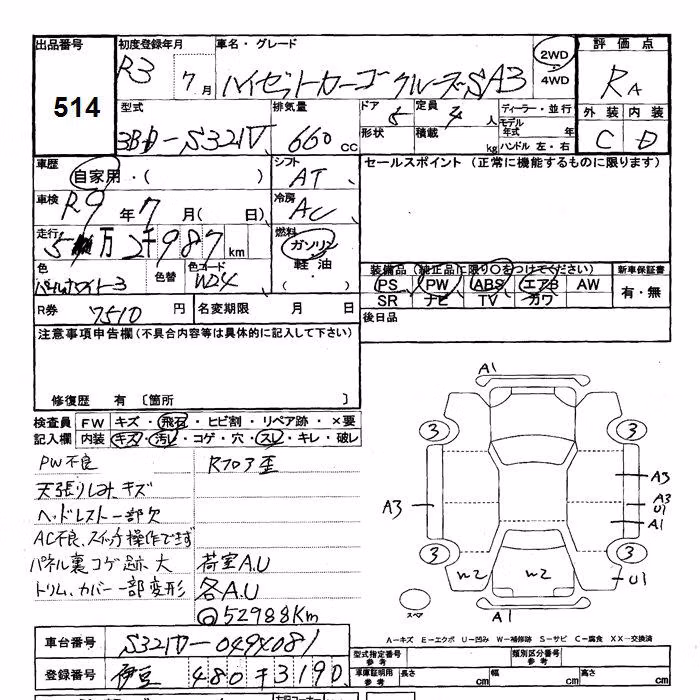 出品番号
514
初度登録年月
R3 7月
車名・グレード
ハイゼットカーゴ クルーズSA3
2WD
4WD
評価点
RA
外装 内装
C D
型式
3BD-S321V
排気量
660 cc
ドア
5
定員
4 人
形状
積載
kg
ディーラー・並行
モデル年式 年
ハンドル 左・右
車歴
自家用・( )
シフト
AT
セールスポイント (正常に機能するものに限ります)
車検
R9年 7月( 日)
冷房
AC
走行
5万2千987km
燃料
ガソリン
軽油
・( )
色
パールホワイト3
色替
色コード
W24
装備品(純正品に限り○をつけてください)
新車保証書
PS PW ABS エアB AW
SR ナビ TV カワ
有・無
R券 7510円
名変期限 月 日
後日品
注意事項申告欄(不具合内容等は具体的に記入して下さい)
修復歴 有 〔箇所 〕
検査員記入欄
FW キズ・飛石・ヒビ割・リペア跡・×要
内装 キズ・汚レ・コゲ・穴・スレ・キレ・破レ
PW不良
Rフロア歪
天張りしみ、キズ
ヘッドレスト一部欠
AC不良、スイッチ操作できず
パネル裏コゲ跡大
荷室A.U
トリム、カバー一部変形
各A.U
@52988Km
A1
3 3
A3
A3
A3
U1
A1
3 3
W2 W2
U1
A1
スペア
A-キズ E-エクボ U-凹み W-補修跡 S-サビ C-腐食 XX-交換済
車台番号 S321V-0494081
登録番号 伊豆 480 そ 3190
型式指定番号 参考
類別区分番号 参考
車庫証明用 参考
長さ cm 幅 cm 高さ cm